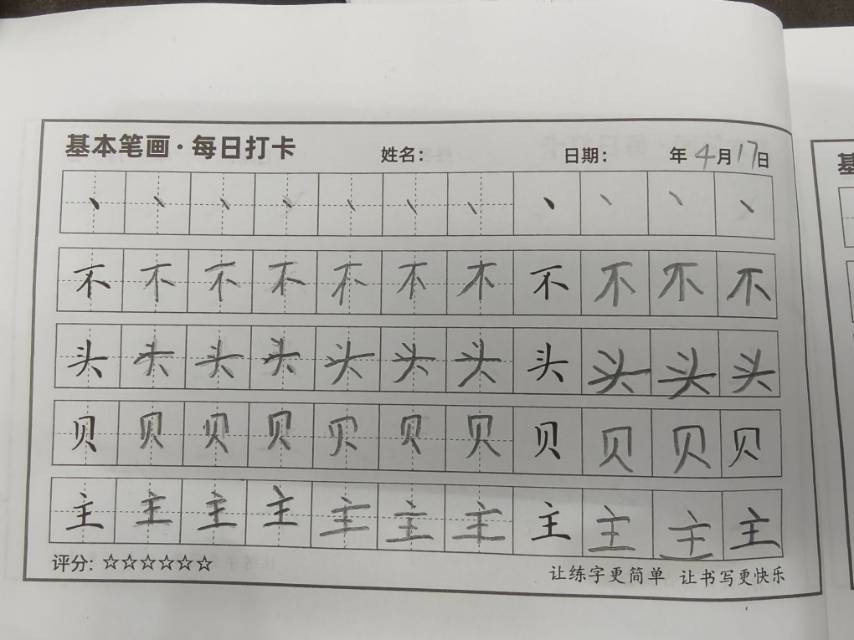 基本笔画·每日打卡 姓名: 日期: 年4月17日
丶丶丶丶丶丶丶丶丶丶丶
不不不不不不不不不不不
头头头头头头头头头头头
贝贝贝贝贝贝贝贝贝贝贝
主主主主主主主主主主主
评分:☆☆☆☆☆☆ 让练字更简单 让书写更快乐